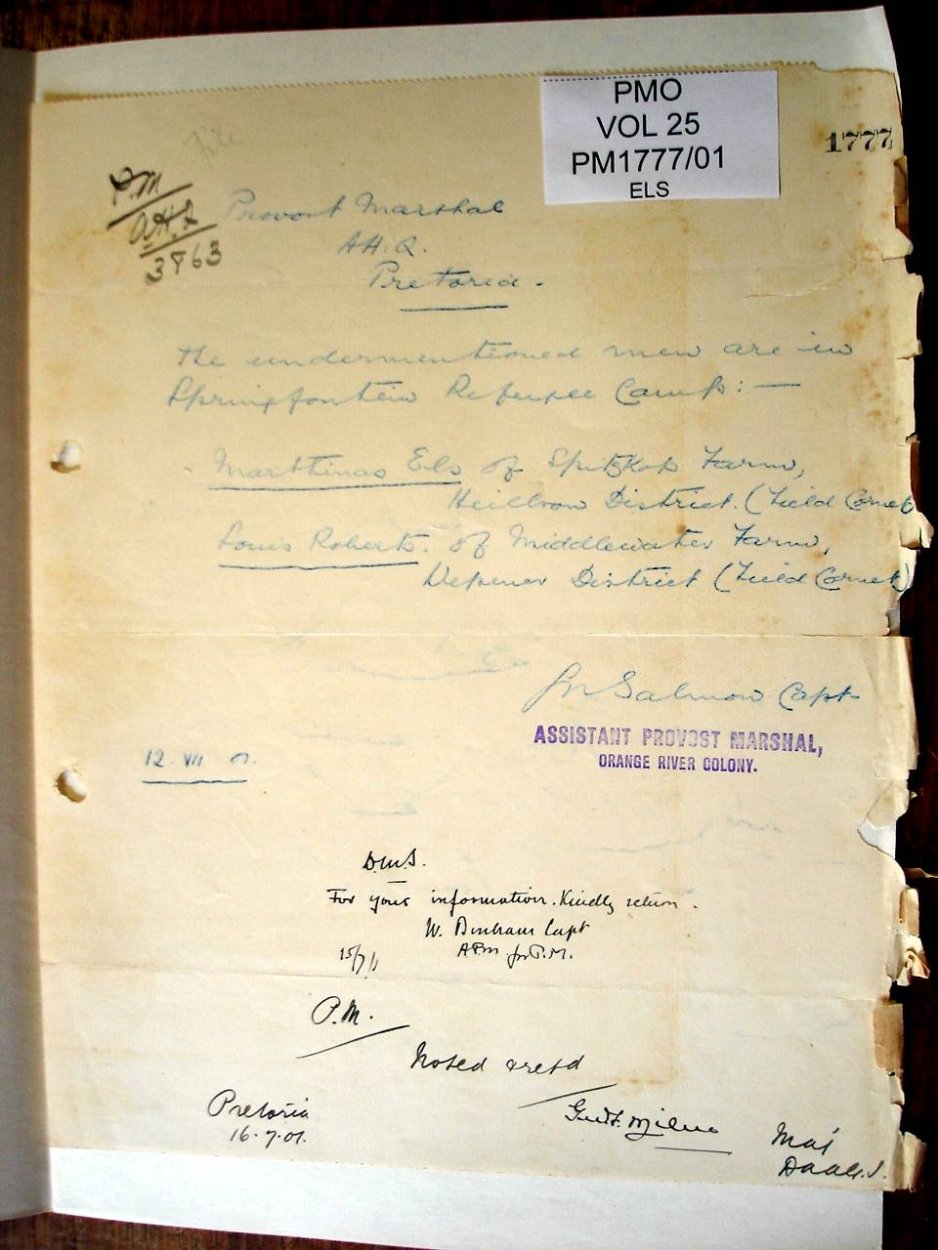 PMO
VOL 25
PM1777/01
ELS
1777
file
P.M
A.H.Q
3863
Provost Marshal
A.H.Q.
Pretoria.
The undermentioned men are in
Springfontein Refugee Camp: —
Marthinas Els of Spitzkop Farm,
Heilbron District. (Field Cornet
Louis Roberts. of Middlewater Farm,
Wepener District (Field Cornet)
Salmon Capt
ASSISTANT PROVOST MARSHAL,
ORANGE RIVER COLONY.
12. VII 01.
D.M.I.
For your information. Kindly return.
W. Bonham Capt
APM for P.M.
15/7/1
P.M.
Noted & retd
Pretoria
16.7.01.
Milne
Maj